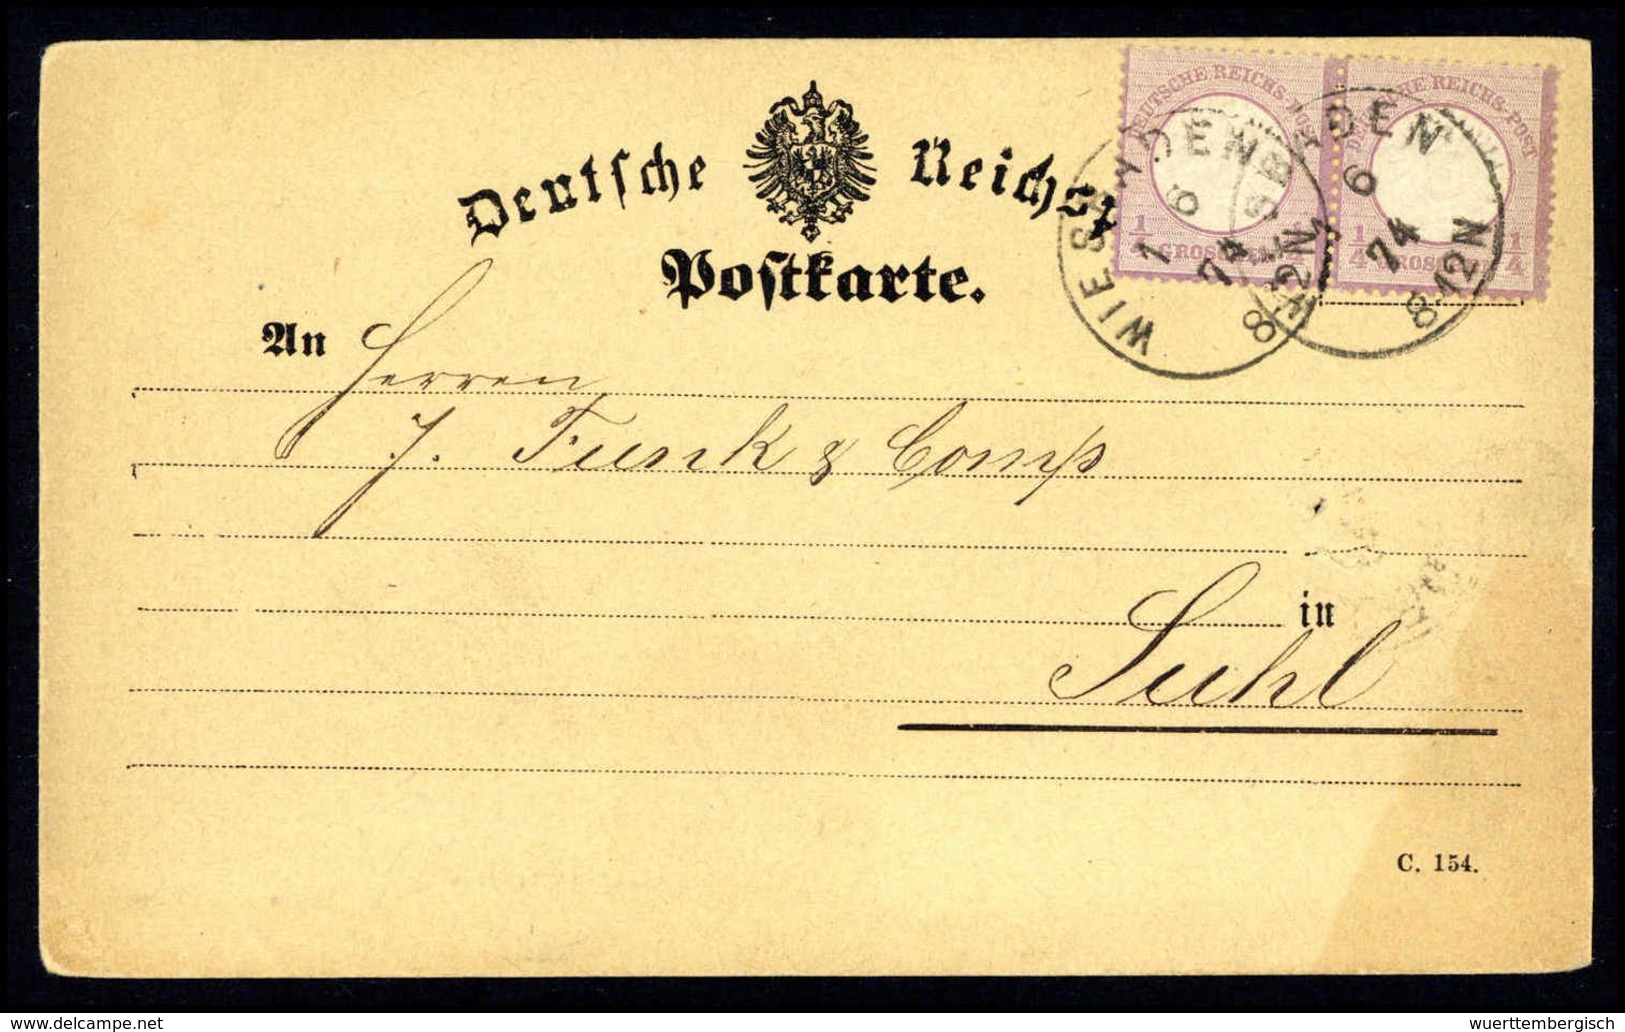 Deutsche Reichsp
Postkarte.
DEUTSCHE REICHS-POST
1/4 GROSCHEN 1/4
DEUTSCHE REICHS-POST
1/4 GROSCHEN 1/4
WIESBADEN
1 6 74
8-12N
WIESBADEN
1 6 74
8-12N
An Herren
J. Funk & Comp
in
Suhl
C. 154.
delcampe.net
wuerttembergisch